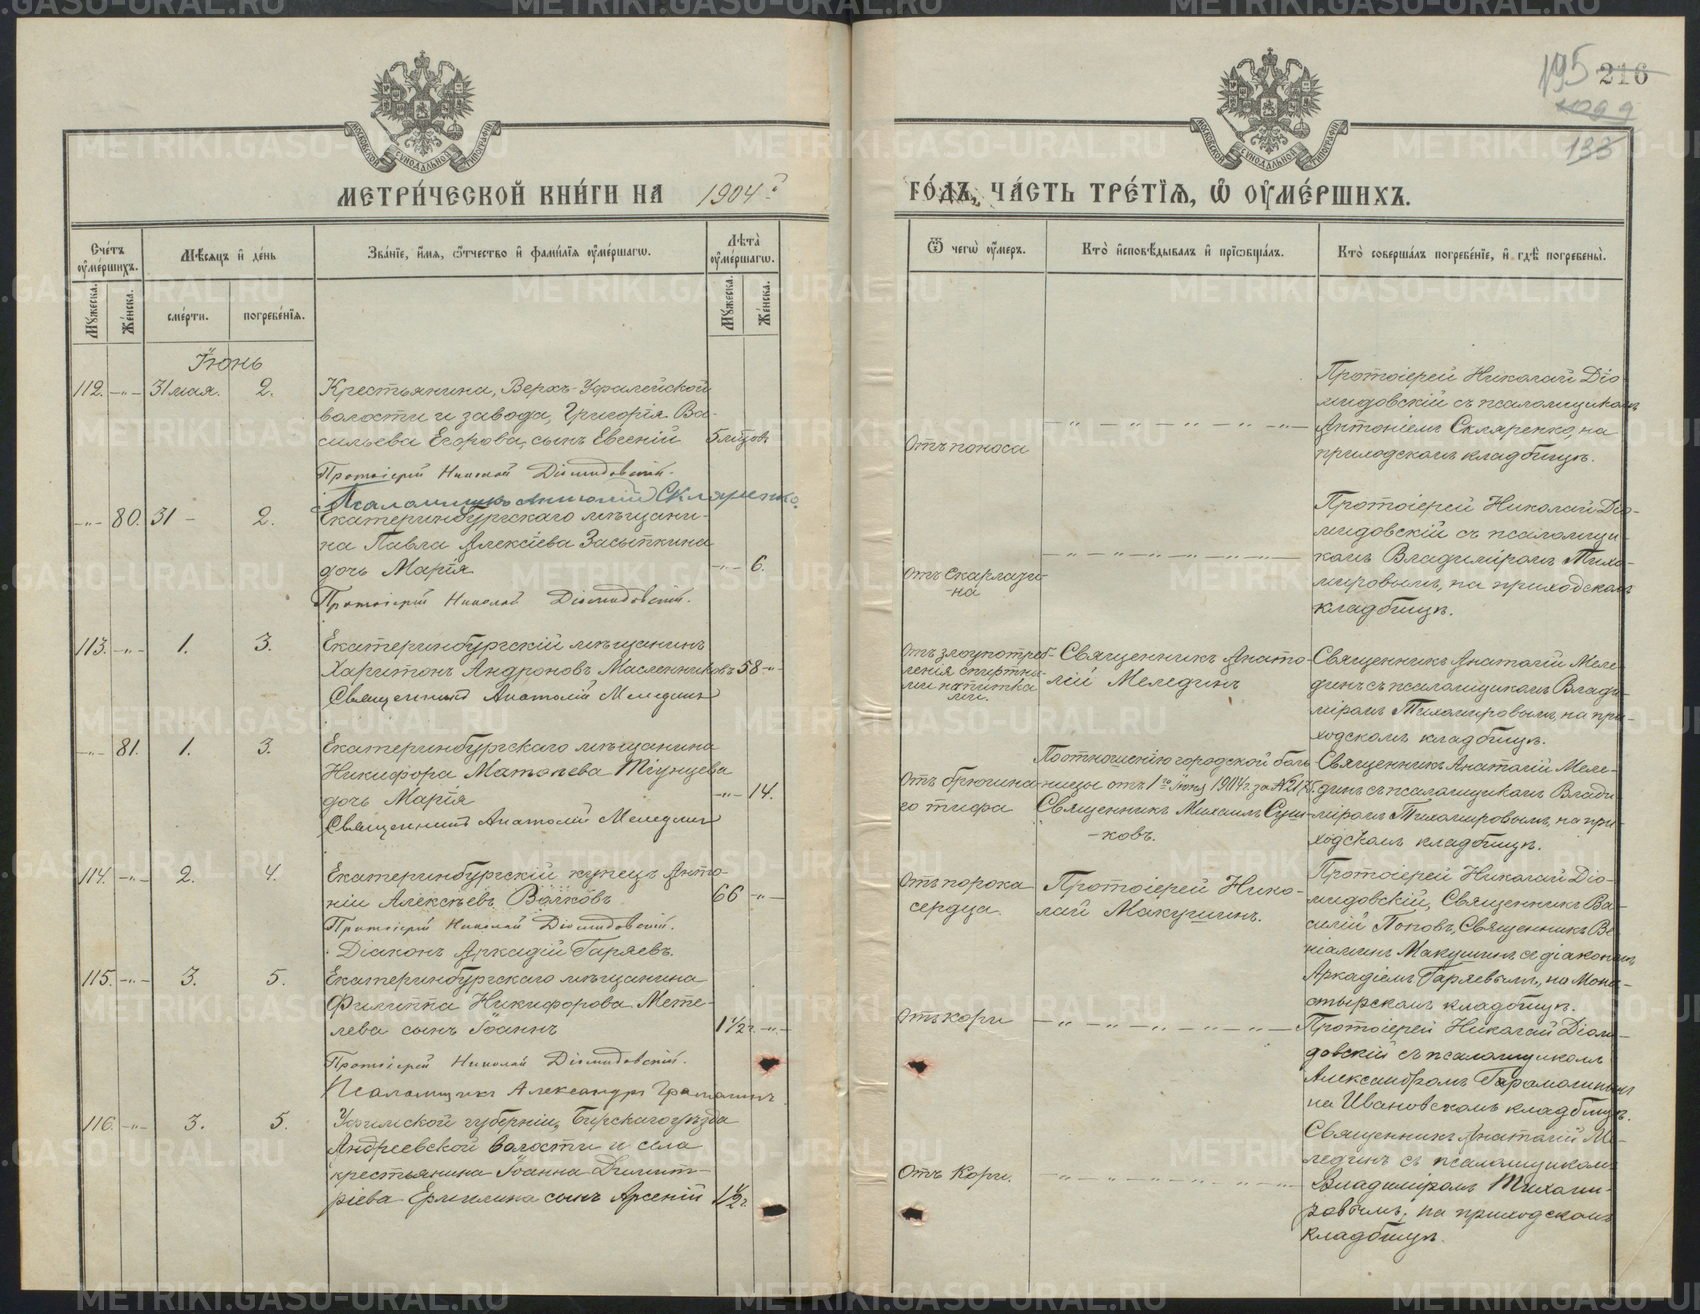 195 216
1099
133
МОСКОВСКОЙ СѴНОДАЛЬНОЙ ТИПОГРАФІИ
МОСКОВСКОЙ СѴНОДАЛЬНОЙ ТИПОГРАФІИ
МЕТРИ́ЧЕСКОЙ КНИ́ГИ НА 1904 й
ГО́ДЪ, ЧА́СТЬ ТРЕ́ТІѦ, Ѡ ОУМЕ́РШИХЪ.
Сче́тъ оумершихъ.
Мꙋжеска.
Же́нска.
Мѣ́сяцъ и де́нь
сме́рти.
погребе́нія.
Зва́ніе, и́мя, ѻтчество и фами́лія оуме́ршагѡ.
Лѣта̀ оуме́ршагѡ.
Мꙋжеска.
Же́нска.
Ѿ чегѡ̀ оумеръ.
Кто̀ исповѣдывалъ и пріѡбща́лъ.
Кто̀ соверша́лъ погребе́ніе, и гдѣ погребены̀.
Іюнь
112. -„- 31 мая. 2.
Крестьянина, Верхъ-Уфалейской
волости и завода, Григорія Ва-
сильева Егорова, сынъ Евгеній
Протоіерей Николай Діомидовскій.
Псаломщикъ Антоній Скляренко.
Отъ поноса
Протоіерей Николай Діо-
мидовскій съ псаломщикомъ
Антоніемъ Скляренко, на
приходскомъ кладбищѣ.
-„- 80. 31 - 2.
Екатеринбургскаго мѣщани-
на Павла Алексіева Засыпкина
дочь Марія -„- 6.
Протоіерей Николай Діомидовскій.
Отъ скарлати-
-на
Протоіерей Николай Діо-
мидовскій съ псаломщи-
комъ Владиміромъ Тихо-
мировымъ, на приходскомъ
кладбищѣ.
113. -„- 1. 3.
Екатеринбургскій мѣщанинъ
Харитонъ Андроновъ Масленниковъ 58 -„-
Священникъ Анатолій Мелединъ
Отъ злоупотреб-
ленія спиртны-
ми напитка
ми.
Священникъ Анато-
лій Мелединъ
Священникъ Анатолій Меле-
динъ съ псаломщикомъ Влади-
міромъ Тихомировымъ, на при-
ходскомъ кладбищѣ.
-„- 81. 1. 3.
Екатеринбургскаго мѣщанина
Никифора Тіунцева
дочь Марія -„- 14.
Священникъ Анатолій Мелединъ
Отъ брюшна-
го тифа
По отношенію городской боль
ницы отъ 1го Іюня 1904г. за №
Священникъ Михаилъ Суш-
-ковъ.
Священникъ Анатолій Меле-
динъ съ псаломщикомъ Влади
міромъ Тихомировымъ, на при-
ходскомъ кладбищѣ.
114. -„- 2. 4.
Екатеринбургскій купецъ Анто-
ній Алексѣевъ Волковъ 66 -„-
Протоіерей Николай Діомидовскій.
Діаконъ Аркадій Гаряевъ.
Отъ порока
сердца.
Протоіерей Нико-
лай Макушинъ.
Протоіерей Николай Діо-
мидовскій, Священникъ Ва-
силій Поповъ, Священникъ Ве
ніаминъ Макушинъ съ діакономъ
Аркадіемъ Гаряевымъ, на Мона-
стырскомъ кладбищѣ.
115. -„- 3. 5.
Екатеринбургскаго мѣщанина
Филиппа Никифорова Мете-
лева сынъ Іоаннъ 1 1/2 г. -„-
Протоіерей Николай Діомидовскій.
Псаломщикъ Александръ Грамолинъ.
Отъ кори
Протоіерей Николай Діоми-
довскій съ псаломщикомъ
Александромъ Грамолинымъ
на Ивановскомъ кладбищѣ.
116. -„- 3. 5.
Уфимской губерніи, Бирскаго уѣзда
Андреевской волости и села
крестьянина Іоанна Димит-
ріева Ермилина сынъ Арсеній 1 1/2 г.
Отъ Кори.
Священникъ Анатолій Ме-
лединъ съ псаломщикомъ
Владиміромъ Тихоми-
ровымъ, на приходскомъ
кладбищѣ.
METRIKI.GASO-URAL.RU